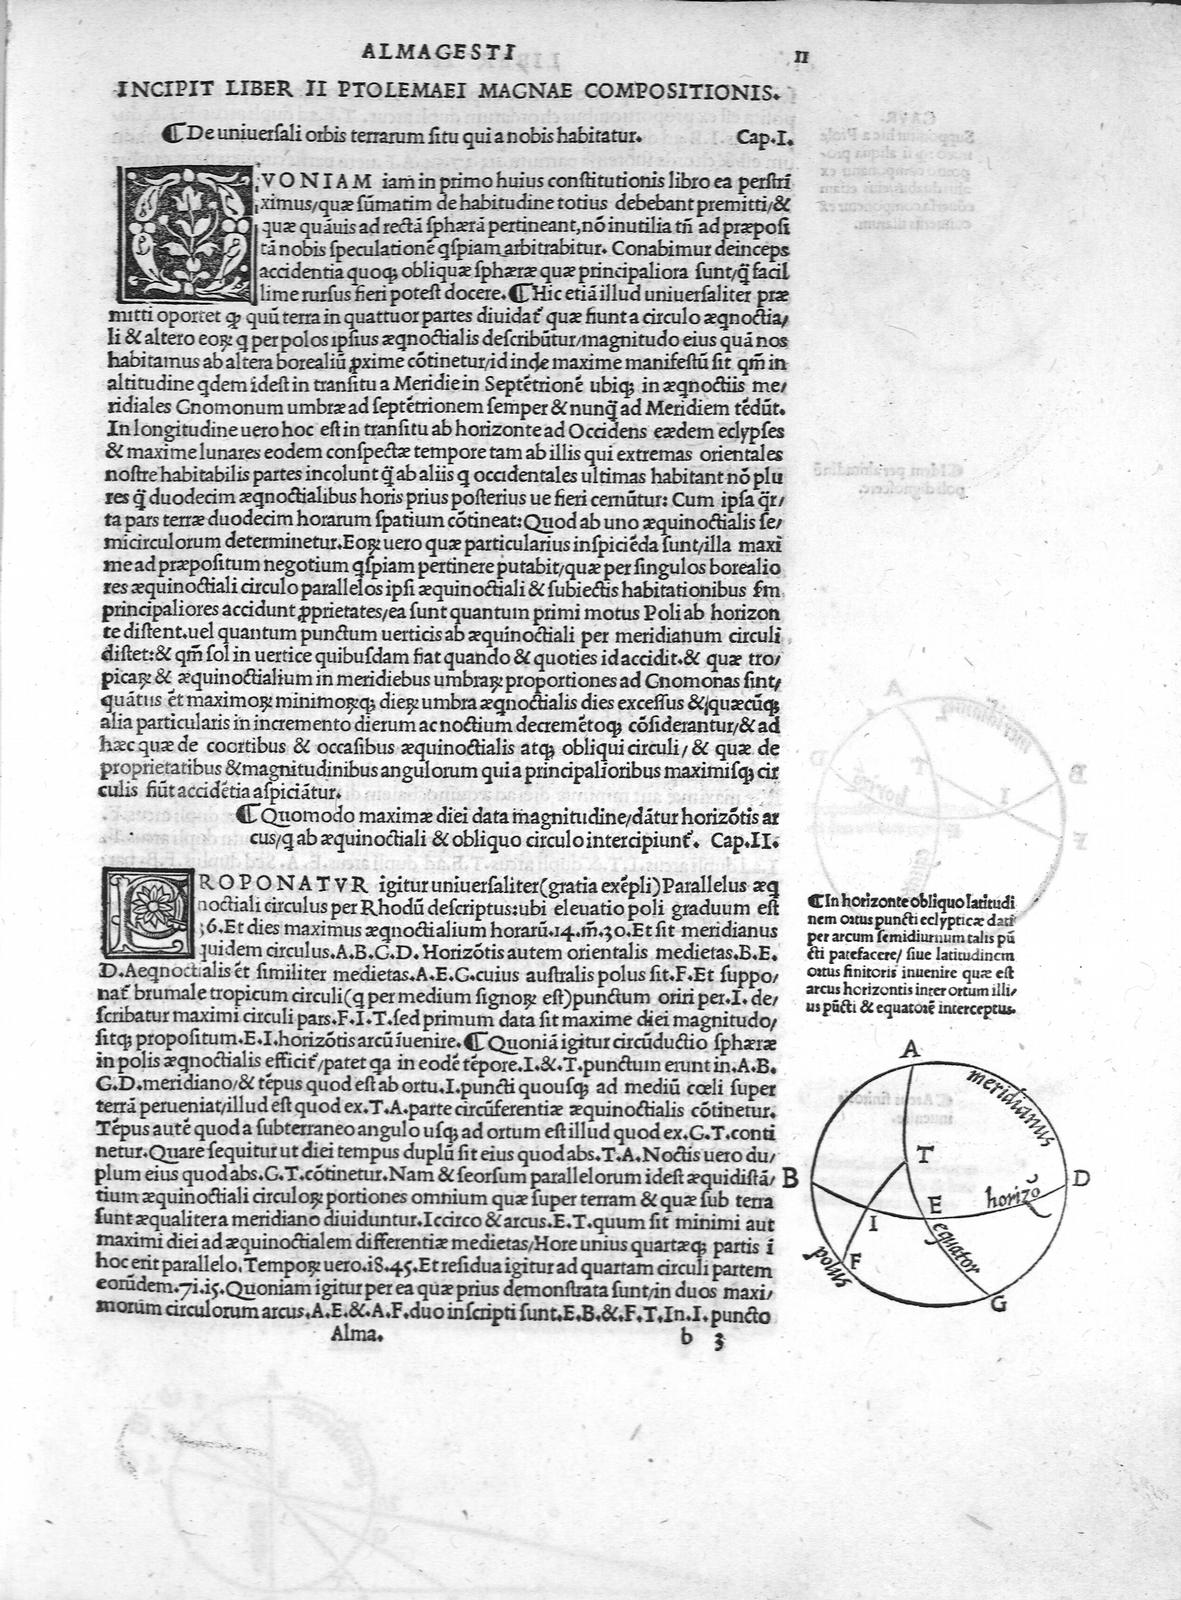 ALMAGESTI II
INCIPIT LIBER II PTOLEMAEI MAGNAE COMPOSITIONIS.
¶ De uniuersali orbis terrarum situ qui a nobis habitatur. Cap.I.
QVONIAM iam in primo huius constitutionis libro ea perstri
ximus/quæ sūmatim de habitudine totius debebant premitti/&
quæ quāuis ad rectā sphærā pertineant,nō inutilia tñ ad præposi
tā nobis speculationē qspiam arbitrabitur. Conabimur deinceps
accidentia quoqꝫ obliquæ sphæræ quæ principaliora sunt/q̄ facil
lime rursus fieri potest docere.¶ Hic etiā illud uniuersaliter præ
mitti oportet ꝙ quū terra in quattuor partes diuidat᷑ quæ fiunt a circulo æqnoctia/
li & altero eoꝝ q per polos ipsius æqnoctialis describūtur/magnitudo eius quā nos
habitamus ab altera borealiū ꝓxime cōtinetur/id inde maxime manifestū sit qm̄ in
altitudine qdem idest in transitu a Meridie in Septētrionē ubiqꝫ in æqnoctiis me/
ridiales Gnomonum umbræ ad septētrionem semper & nunq̄ ad Meridiem tēdūt.
In longitudine uero hoc est in transitu ab horizonte ad Occidens eædem eclypses
& maxime lunares eodem conspectæ tempore tam ab illis qui extremas orientales
nostre habitabilis partes incolunt q̄ ab aliis q occidentales ultimas habitant nō plu
res q̄ duodecim æqnoctialibus horis prius posterius ue fieri cernūtur: Cum ipsa q̄r/
ta pars terræ duodecim horarum spatium cōtineat: Quod ab uno æquinoctialis se/
micirculorum determinetur. Eoꝝ uero quæ particularius inspiciēda sunt/illa maxi
me ad præpositum negotium qspiam pertinere putabit/quæ per singulos borealio
res æquinoctiali circulo parallelos ipsi æquinoctiali & subiectis habitationibus sm̄
principaliores accidunt ꝓprietates/ea sunt quantum primi motus Poli ab horizon
te distent.uel quantum punctum uerticis ab æquinoctiali per meridianum circuli
distet:& qm̄ sol in uertice quibusdam fiat quando & quoties id accidit.& quæ tro/
picaꝝ & æquinoctialium in meridiebus umbraꝝ proportiones ad Gnomonas sint/
quātus ēt maximoꝝ minimoꝝqꝫ dieꝝ umbra æqnoctialis dies excessus &/quæcūqꝫ
alia particularis in incremento dierum ac noctium decremētoqꝫ cōsiderantur/& ad
hæc quæ de coortibus & occasibus æquinoctialis atqꝫ obliqui circuli/ & quæ de
proprietatibus & magnitudinibus angulorum qui a principalioribus maximisqꝫ cir
culis fiūt accidētia aspiciātur.
¶ Quomodo maximæ diei data magnitudine/dātur horizōtis ar
cus/q ab æquinoctiali & obliquo circulo intercipiunt᷑. Cap.II.
PROPONATVR igitur uniuersaliter (gratia exēpli) Parallelus æq
noctiali circulus per Rhodū descriptus:ubi eleuatio poli graduum est
36.Et dies maximus æqnoctialium horarū.14.m̄.30.Et sit meridianus
quidem circulus.A.B.G.D. Horizōtis autem orientalis medietas.B.E.
D.Aeqnoctialis ēt similiter medietas.A.E.G.cuius australis polus sit.F.Et suppo/
nat᷑ brumale tropicum circuli (q per medium signoꝝ est) punctum oriri per.I. de/
scribatur maximi circuli pars.F.I.T.sed primum data sit maxime diei magnitudo/
sitqꝫ propositum.E.I.horizōtis arcū iuenire.¶ Quoniā igitur circūductio sphæræ
in polis æqnoctialis efficit᷑/patet qa in eodē tēpore.I.&.T.punctum erunt in.A.B.
G.D.meridiano/& tēpus quod est ab ortu.I.puncti quousqꝫ ad mediū cœli super
terrā perueniat/illud est quod ex.T.A.parte circūferentiæ æquinoctialis cōtinetur.
Tēpus autē quod a subterraneo angulo usqꝫ ad ortum est illud quod ex.G.T.conti
netur. Quare sequitur ut diei tempus duplū sit eius quod abs.T.A.Noctis uero du/
plum eius quod abs.G.T.cōtinetur. Nam & seorsum parallelorum idest æquidistā/
tium æquinoctiali circuloꝝ portiones omnium quæ super terram & quæ sub terra
sunt æqualiter a meridiano diuiduntur. Iccirco & arcus.E.T.quum sit minimi aut
maximi diei ad æquinoctialem differentiæ medietas/Hore unius quartæqꝫ partis ī
hoc erit parallelo. Tempoꝝ uero.18.45.Et residua igitur ad quartam circuli partem
eorūdem.71.15.Quoniam igitur per ea quæ prius demonstrata sunt/in duos maxi/
morum circulorum arcus.A.E.&.A.F.duo inscripti sunt.E.B.&.F.T.In.I.puncto
Alma. b 3
¶ In horizonte obliquo latitudi
nem ortus puncti eclypticæ dati
per arcum semidiurnum talis pū
cti patefacere/ siue latitudinem
ortus finitoris inuenire quæ est
arcus horizontis inter ortum illi/
us pūcti & equatorē interceptus.
A
meridianus
T
B
D
horizō
E
I
equator
F
polus
G